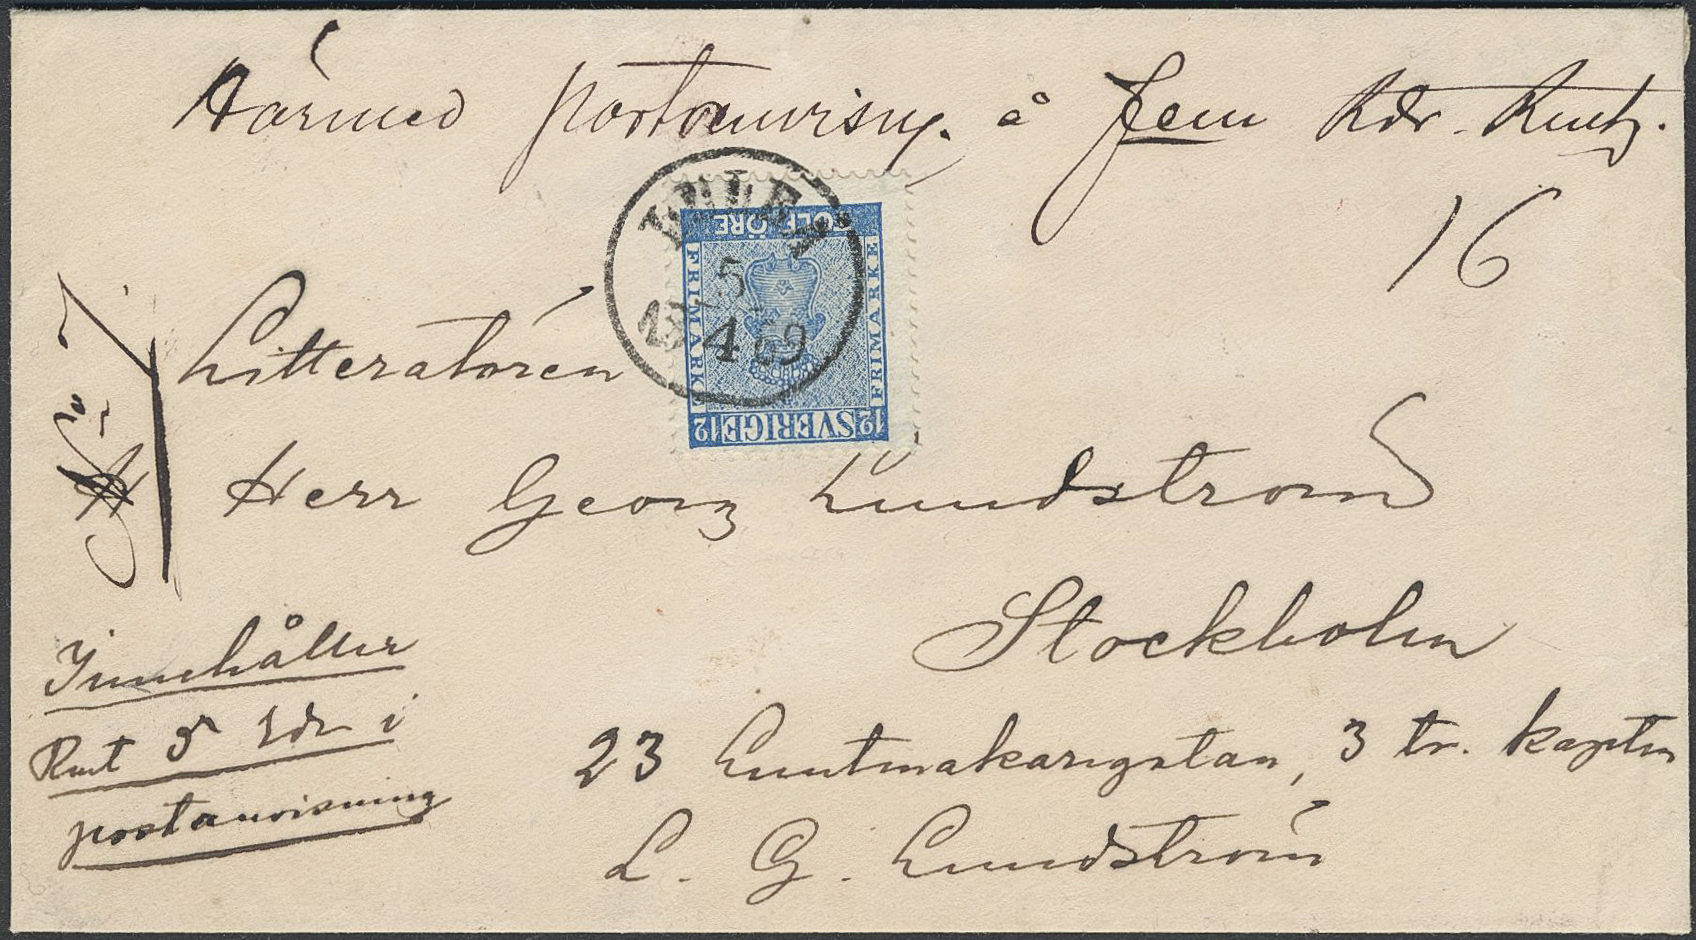 Härmed postanvisng. à fem Rdr. Rmt.
16
TOLF ÖRE
FRIMÄRKE
FRIMÄRKE
12 SVERIGE 12
5
4
Litteratören
Herr Georg Lundström
Stockholm
23 Luntmakaregatan, 3 tr. kapten
L. G. Lundström
Innehåller
Rmt 5 Rdr i
postanvisning